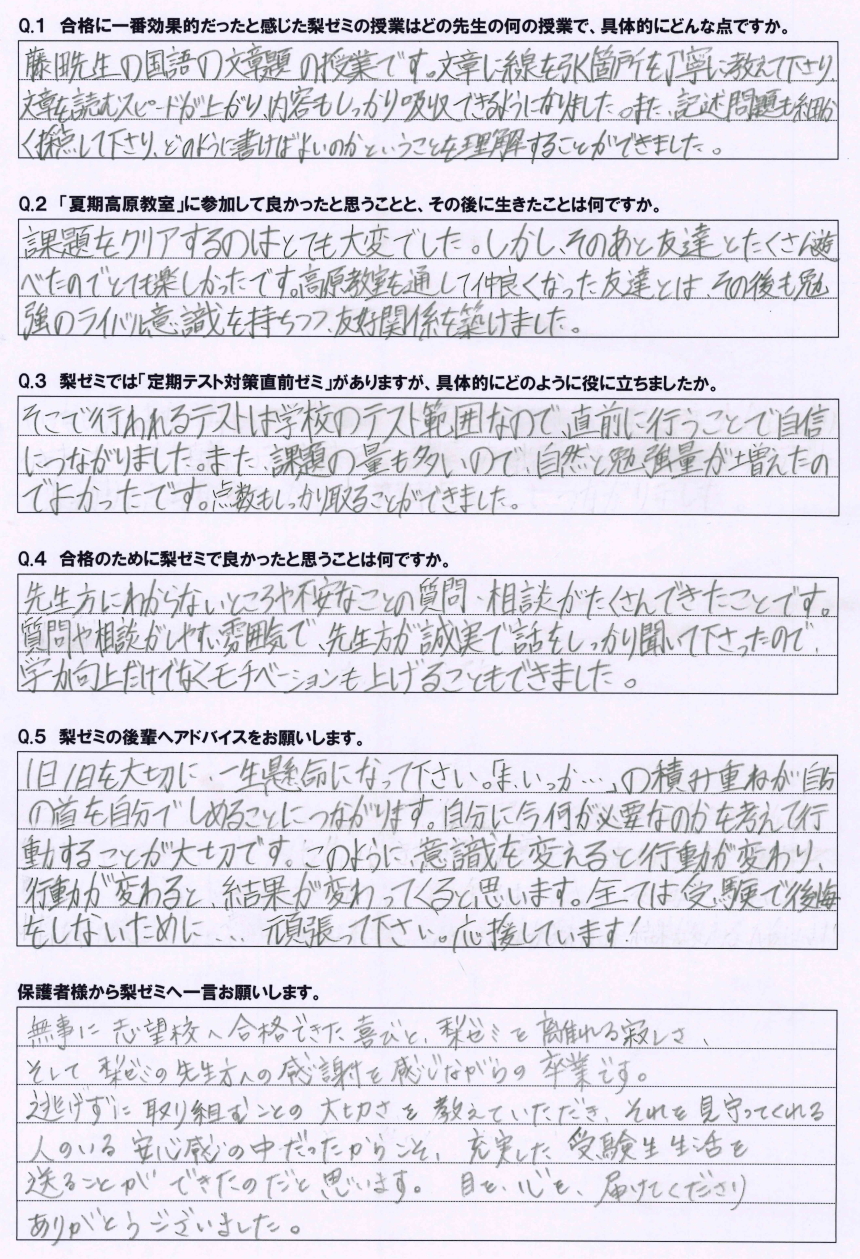 Q.1 合格に一番効果的だったと感じた梨ゼミの授業はどの先生の何の授業で、具体的にどんな点ですか。
藤田先生の国語の文章題の授業です。文章に線を引く箇所を丁寧に教えて下さり、
文章を読むスピードが上がり、内容もしっかり吸収できるようになりました。また、記述問題も細か
く採点して下さり、どのように書けばよいのかということを理解することができました。
Q.2 「夏期高原教室」に参加して良かったと思うことと、その後に生きたことは何ですか。
課題をクリアするのはとても大変でした。しかし、そのあと友達とたくさん遊
べたのでとても楽しかったです。高原教室を通して仲良くなった友達とは、その後も勉
強のライバル意識を持ちつつ、友好関係を築けました。
Q.3 梨ゼミでは「定期テスト対策直前ゼミ」がありますが、具体的にどのように役に立ちましたか。
そこで行われるテストは学校のテスト範囲なので、直前に行うことで自信
につながりました。また、課題の量も多いので、自然と勉強量が増えたの
でよかったです。点数もしっかり取ることができました。
Q.4 合格のために梨ゼミで良かったと思うことは何ですか。
先生方にわからないところや不安なことの質問・相談がたくさんできたことです。
質問や相談がしやすい雰囲気で、先生方が誠実で話をしっかり聞いて下さったので、
学力向上だけでなくモチベーションも上げることもできました。
Q.5 梨ゼミの後輩へアドバイスをお願いします。
1日1日を大切に、一生懸命になって下さい。「ま、いっか…」の積み重ねが自分
の首を自分でしめることにつながります。自分に今何が必要なのかを考えて行
動することが大切です。このように、意識を変えると行動が変わり、
行動が変わると、結果が変わってくると思います。全ては受験で後悔
をしないために... 頑張って下さい。応援しています!
保護者様から梨ゼミへ一言お願いします。
無事に志望校へ合格できた喜びと、梨ゼミを離れる寂しさ、
そして梨ゼミの先生方への感謝を感じながらの卒業です。
逃げずに取り組むことの大切さを教えていただき、それを見守ってくれる
人のいる安心感の中だったからこそ、充実した受験生生活を
送ることができたのだと思います。目を、心を、届けてくださり
ありがとうございました。